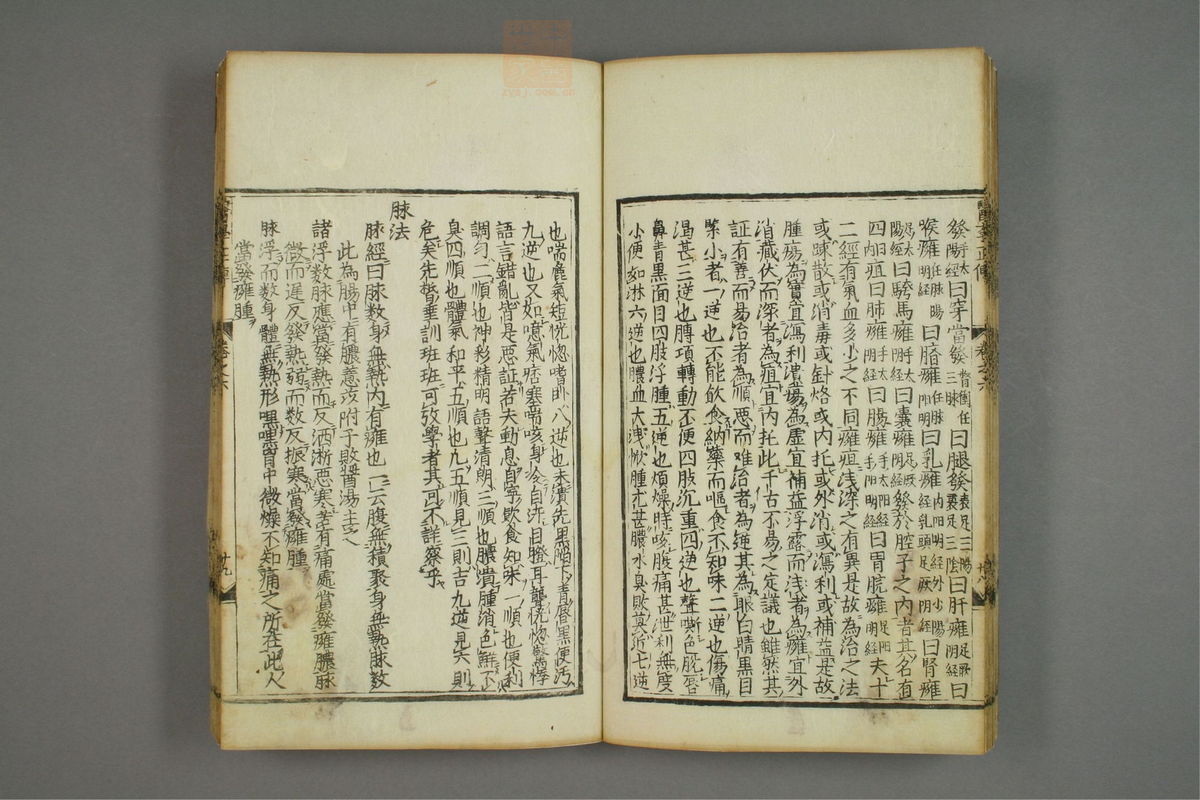 發手太陽經曰穿當發督衝任三脉曰腿發表足三陽裏足三陰曰肝癰足厥陰經曰
喉癰任脉陽明經曰臍癰任脉陽明曰乳癰內陽明經外少陽經乳頭足厥陰經曰腎癰
足太陽經曰騎馬癰曰囊癰足厥陰經發於腔子之內者其名有
四曰疽曰肺癰手太陰經曰腸癰手太陽經手陽明經曰胃脘癰足陽明經夫十
二經有氣血多少之不同癰疽淺深之有異是故為治之法
或疎散或消毒或針烙或內托或外消或瀉利或補益是故
腫瘍為實宜瀉利潰瘍為虛宜補益浮露而淺者為癰宜外
消藏伏而深者為疽宜內托此千古不易之定議也雖然其
証有善而易治者為順惡而难治者為逆其為眼白睛黑目
緊小者一逆也不能飲食納藥而嘔食不知味二逆也傷痛
渴甚三逆也膊項轉動不便四肢沉重四逆也聲嘶色脫唇
鼻青黑面目四肢浮腫五逆也煩燥時咳腹痛甚泄利無度
小便如淋六逆也膿血大洩焮腫尤甚膿水臭敗莫近七逆
也喘麁氣短恍惚嗜卧八逆也未潰先黑陷下青唇黑便汚
九逆也又如噫氣痞塞喘咳身冷自汗目瞪耳聾恍惚驚悸
語言錯亂皆是惡証者夫動息自寧飲食知味一順也便利
調勻二順也神彩精明語聲清朗三順也膿潰腫消色鮮不
臭四順也體氣和平五順也凢五順見三則吉九逆見六則
危矣先哲垂訓班班可攷學者其可不詳察乎
脉法
脉經曰脉数身無熱內有癰也一云腹無積聚身無熱脉数
此為腸中有膿薏苡附子敗醬湯主之
諸浮数脉應當發熱而反洒淅惡寒若有痛處當發癰膿脉
微而遲反發熱弱而数反振寒當發癰腫
脉浮而数身體無熱形嘿嘿胷中微燥不知痛之所在此人
當發癰腫
醫學正傳
卷之六
廿九